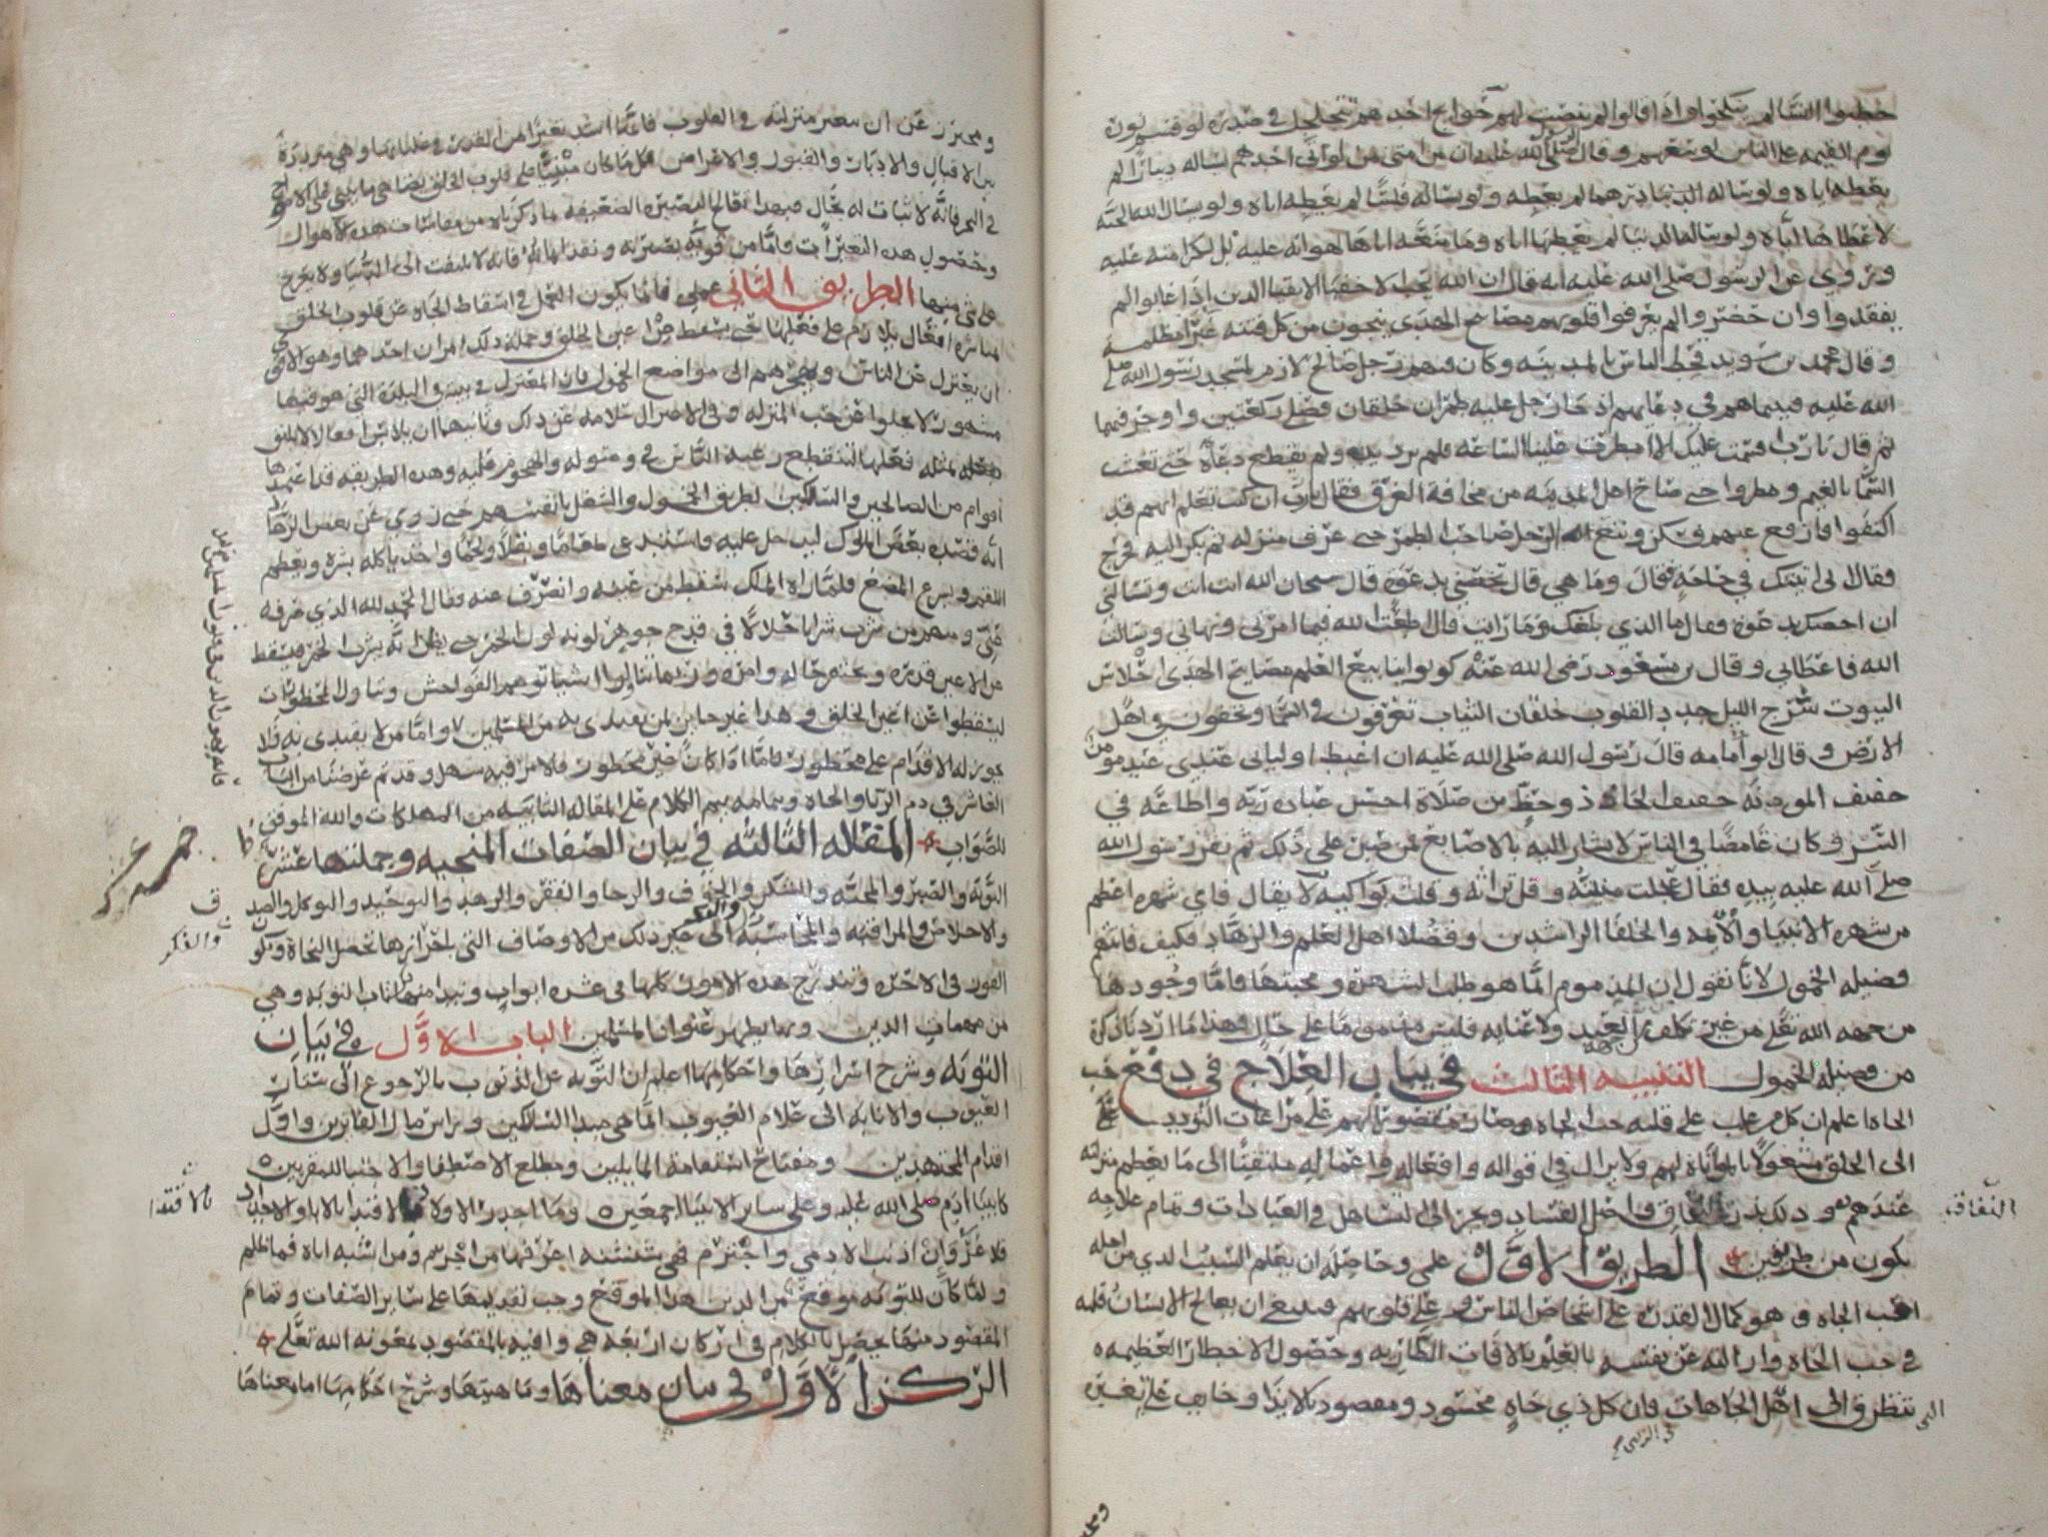 خطبوا النسا لم ينكحوا واذا قالوا لم ينصت لهم حوايج احدهم تتجلجل في صدره لو قسم نوره
يوم القيمه على الناس لوسعهم وقال صلى الله عليه ان من امتى من لو اتى احدكم يساله دينارا لم
يعطه اياه ولو ساله درهما لم يعطه ولو ساله فلسا لم يعطه اياه ولو سال الله الجنه
لاعطاها اياه ولو ساله الدنيا لم يعطها اياه وما منعه اياها لهوانه عليه بل لكرامته عليه
وروي عن الرسول صلى الله عليه انه قال ان الله يحب الاخفيا الاتقيا الذين اذا غابوا لم
يفقدوا وان حضروا لم يعرفوا قلوبهم مصابيح الهدى ينجون من كل فتنه غبرا مظلمه
وقال محمد بن سويد قحط الناس بالمدينه وكان فيهم رجل صالح لازم لمسجد رسول الله صلى
الله عليه فبينما هم في دعايهم اذ جا رجل عليه طمران خلقان فصلى ركعتين واوجز فيهما
ثم قال يا رب اقسمت عليك الا امطرت علينا الساعه فلم يرد يديه ولم يقطع دعاه حتى تغشت
السما بالغيم ومطروا حتى صاح اهل المدينه من مخافة الغرق فقال يا رب ان كنت تعلم انهم قد
اكتفوا فارفع عنهم فسكن وتبع الرجل صاحب الطمر حتى عرف منزله ثم بكر اليه فخرج
فقال اني اتيتك في حاجه فقال وما هي قال تخصني بدعوة قال سبحان الله انت انت وتسالني
ان اخصك بدعوة وقال ما الذي بلغك وما رايت قال اطعت الله فيما امرني ونهاني وسالت
الله فاعطاني وقال بن مسعود رضى الله عنه كونوا ينابيع العلم مصابيح الهدى احلاس
البيوت سرج الليل جدد القلوب خلقان الثياب تعرفون في السما وتخفون في اهل
الارض وقال ابو امامه قال رسول الله صلى الله عليه ان اغبط اوليائى عندي عبد مومن
خفيف الحاذ ذو حظ من صلاة احسن عبادة ربه واطاعه في
السر وكان غامضا في الناس لا يشار اليه بالاصابع ثم صبر على ذلك ثم نقر رسول الله
صلى الله عليه بيده فقال عجلت منيته وقل تراثه وقلت بواكيه لا يقال فاي شهره اعظم
من شهره الانبيا والايمه والخلفا الراشدين وفضلا اهل العلم والزهاد فكيف فاتتهم
فضيله الخمول لانا نقول ان المذموم انما هو طلب الشهرة ومحبتها فاما وجودها
من جهه الله تعلى من غير تكلف من جهه العبد ولا عنايه فليس مذموما على حال وهذا ما اردنا ذكره
من فضيله الخمول التنبيه الثالث في بيان العلاج في دفع حب
الجاه اعلم ان كل من غلب على قلبه حب الجاه وصار مقصورا لهم على مراعات التودد
الى الخلق مشغولا بالمراياة لهم ولا يزال في اقواله وافعاله واعماله ملتفتا الى ما يعظم منزلته
عندهم وذلك بذر النفاق واصل الفساد ويجر الى التساهل في العبادات وتمام علاجه
النفاق
يكون من طريقين الطريق الاول علمي وحاصله ان يعلم السبب الذي من اجله
احب الجاه وهو كمال القدرة على اشخاص الناس وعلى قلوبهم فينبغي ان يعالج الانسان قلبه
في حب الجاه وازالته عن نفسه بالعلم بالافات الطاريه وحصول الاخطار العظيمه
تنظرق الى اهل الجاهات فان كل ذي جاه محسود ومقصود بالايذا وخايف على تغير
التى
ومحترز عن ان تتغير منزلته في القلوب فانها اشد تغيرا من القدر في غليانها وهي مترددة
بين الاقبال والادبار والقبول والاعراض فكل ما كان مبنيا على قلوب الخلق يضاهي ما يبنى على الامواج
في البحر فانه لا ثبات له بحال فبهذا تعالج البصيرة الضعيفه ما ذكرناه من مقاسات هذه الاهوال
وحصول هذه التغيرات واما من قويت بصيرته ونفذ ايمانه فانه لا يلتفت الى الدنيا ولا يعرج
على شي منها الطريق الثاني عملي فانما يكون العمل في اسقاط الجاه عن قلوب الخلق
ان يعتزل عن الناس ويهجرهم الى مواضع الخمول فان المعتزل في بيته في البلدة التي هو فيها
مشهور لا يخلوا عن حب المنزله وفي الاعتزال سلامه عن ذلك وثانيهما ان يلابس افعالا لا يليق
اقوام من الصالحين والسالكين لطريق الخمول والشغل بانفسهم حتى روي عن بعض الزهاد
انه قصده بعض الملوك ليدخل عليه فاستدعى طعاما وبقلا ولحما واخذ ياكله بشره ويعظم
اللقمه ويسرع المضغ فلما راه الملك سقط من عينه وانصرف عنه فقال الحمد لله الذي صرفه
عني ومنهم من شرب شرابا حلالا في قدح جوهر لونه لون الخمر حتى يظن انه يشرب الخمر فيسقط
ليسقطوا عن اعين الخلق وهذا غير جايز لمن يقتدى به من المسلمين واما من لا يقتدى به فلا
يجوز له الاقدام على محظور فاما اذا كان غير محظور فالامر فيه سهل وقد تم غرضنا من الباب
العاشر في ذم الريا والجاه وبتمامه يتم الكلام على المقاله الثانيه من المهلكات والله الموفق
للصواب المقاله الثالثه في بيان الصفات المنجيه وجملتها عشر
التوبه والصبر والمحبه والشكر والخوف والرجا والفقر والزهد والتوحيد والتوكل والصدق
والاخلاص والمراقبه والمحاسبه والفكر الى غير ذلك من الاوصاف التي باحرازها تحصل النجاة ويكون
والفكر
الفوز في الاخره وتندرج هذه الامور كلها في عشره ابواب ونبدا منها بكتاب التوبه وهي
من مهمات الدين وبها يظهر عنوان المسلمين الباب الاول في بيان
التوبه وشرح اسرارها واحكامها اعلم ان التوبه عن الذنوب بالرجوع الى ستار
العيوب والانابه الى علام الغيوب انما هي مبدا السالكين وراس مال الفايزين واول
اقدام المجتهدين ومفتاح استقامة المايلين ومطلع الاصطفا والاجتبا للمقربين
كابينا ادم صلى الله عليه وعلى ساير الانبيا اجمعين وما اجدر الاولاد بالاقتدا بالابا والاجداد
بالاقتدا
فلا غرو ان اذنب الادمي واجترم فهي شنشنه اعرفها من اخزم ومن اشبه اباه فما ظلم
ولما كان للتوبه موقع من الدين هذا الموقع وجب تقديمها على ساير الصفات وتمام
المقصود منها يحصل بالكلام في اركان اربعه هي وافيه بالمقصود بمعونه الله تعلى
الركن الاول في بيان معناها وماهيتها وشرح احكامها اما معناها